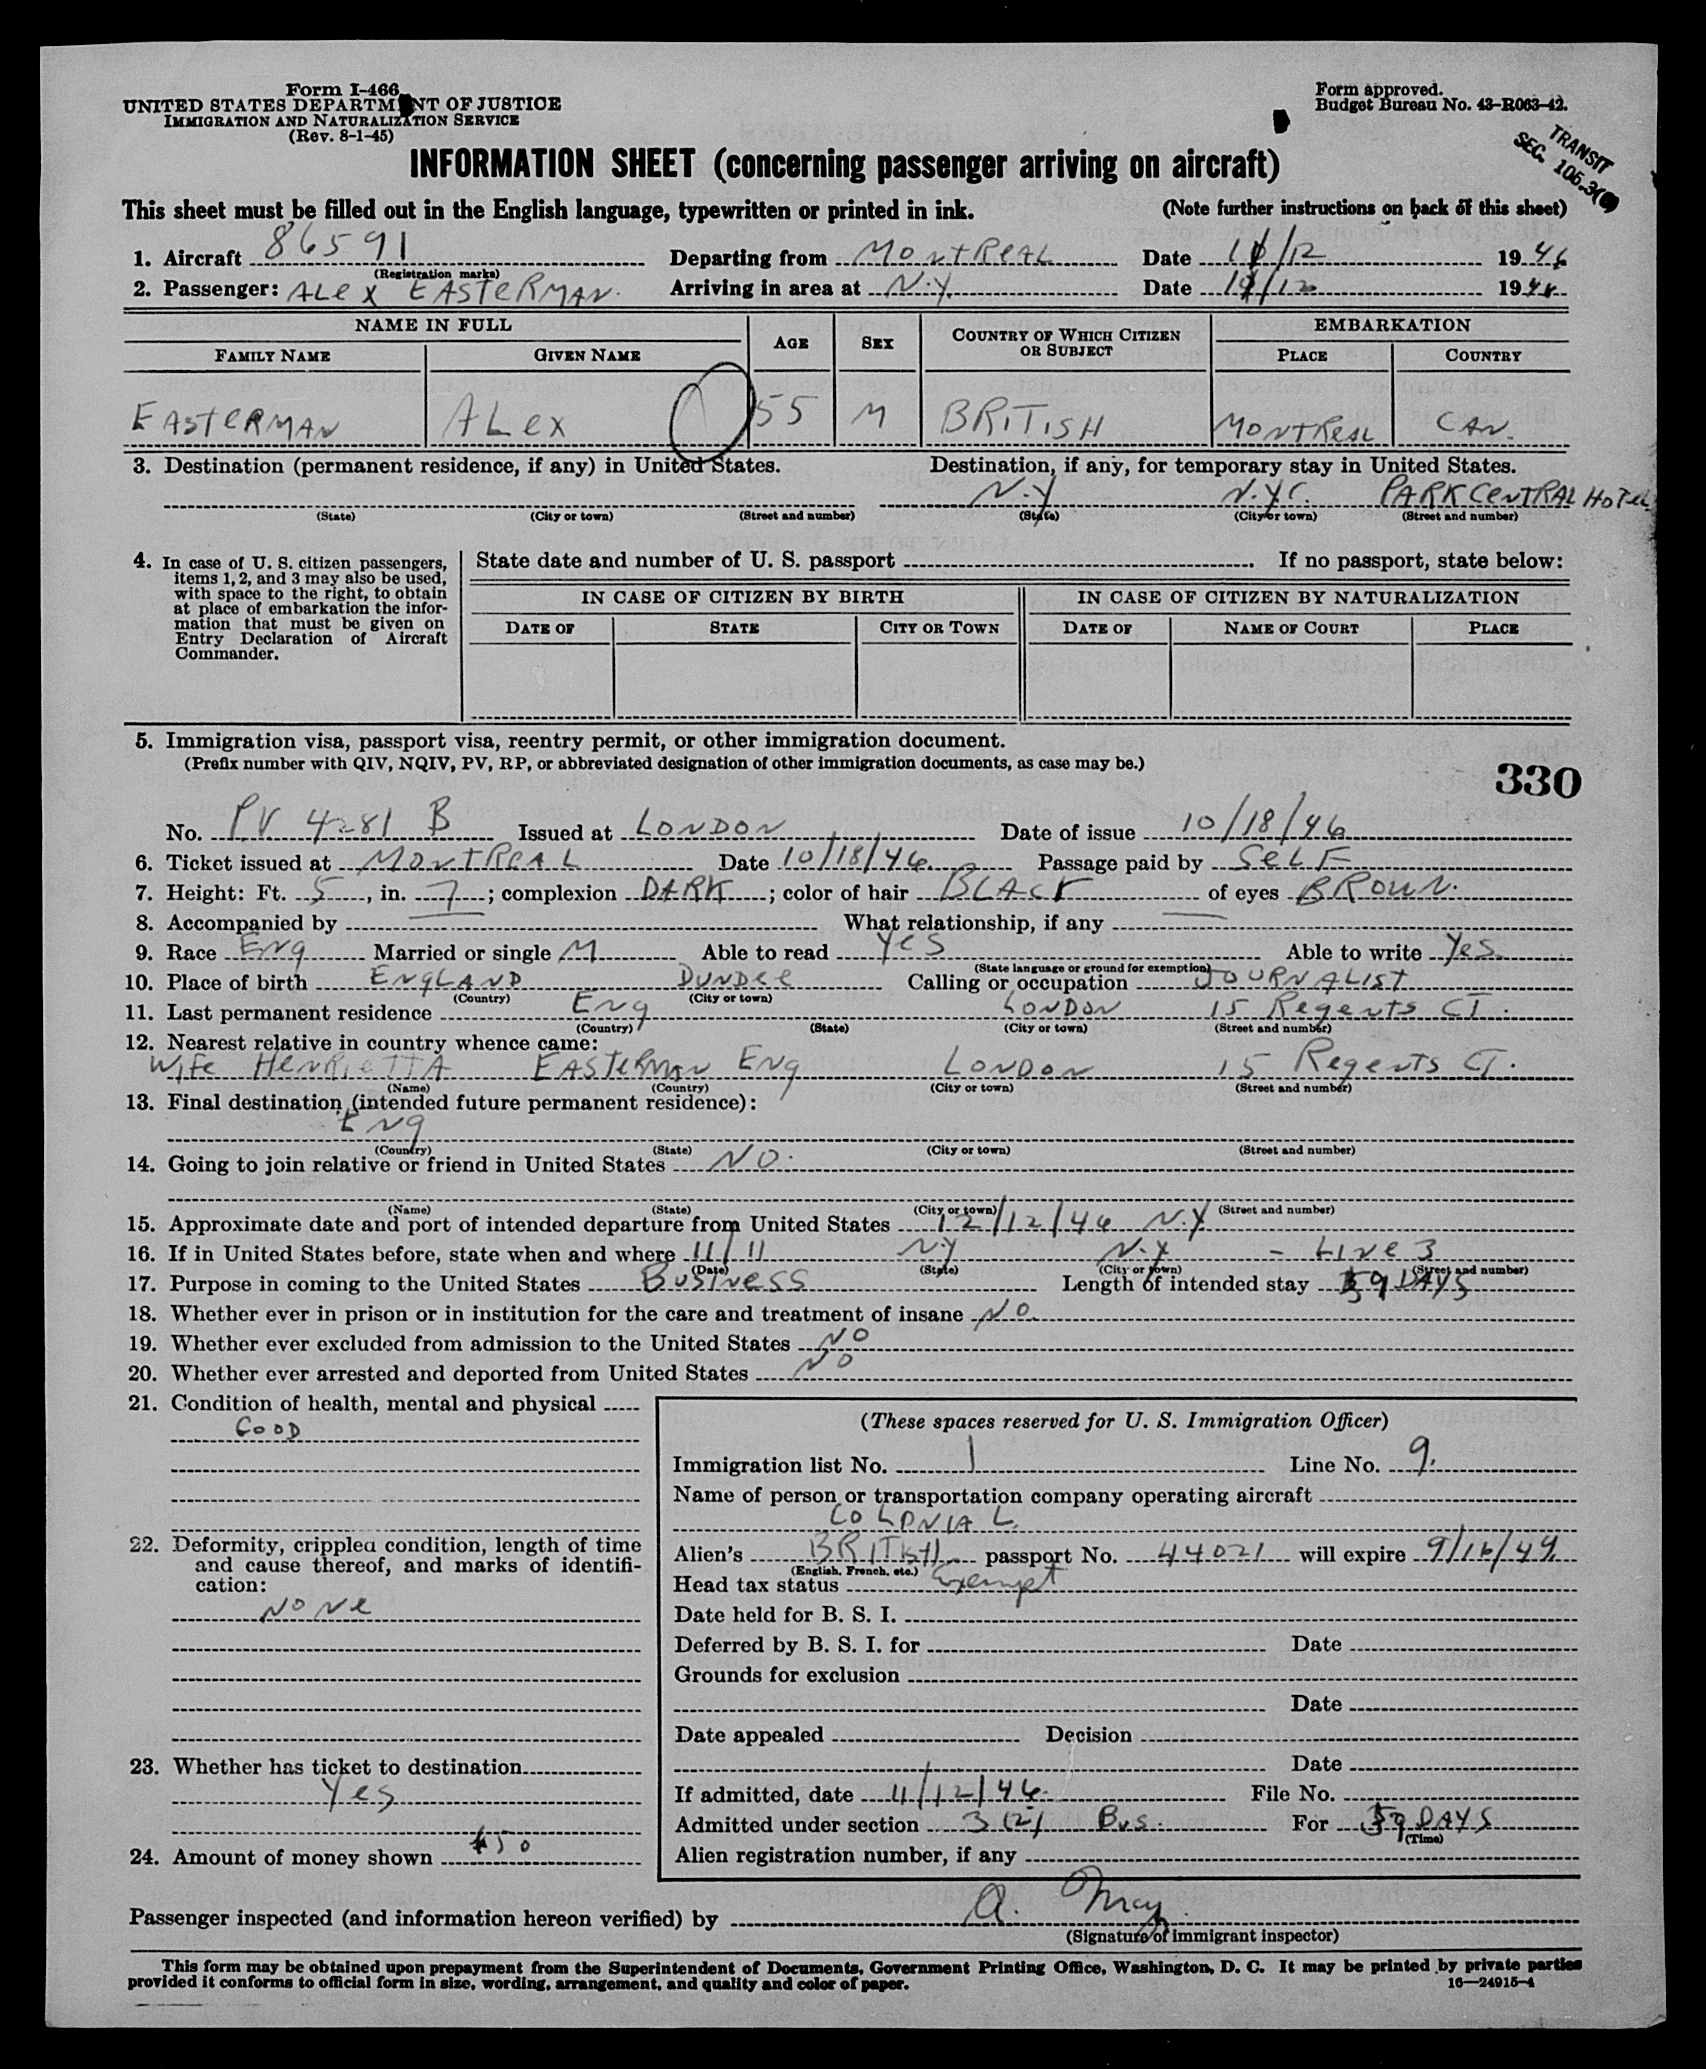 Form I-466
UNITED STATES DEPARTMENT OF JUSTICE
IMMIGRATION AND NATURALIZATION SERVICE
(Rev. 8-1-45)
Form approved.
Budget Bureau No. 43-R063-42.
TRANSIT
SEC. 105.3
INFORMATION SHEET (concerning passenger arriving on aircraft)
This sheet must be filled out in the English language, typewritten or printed in ink. (Note further instructions on back of this sheet)
1. Aircraft 86591 Departing from MONTREAL Date 11/12 1946
(Registration marks)
2. Passenger: ALEX EASTERMAN. Arriving in area at N.Y. Date 11/12 1946
NAME IN FULL AGE SEX COUNTRY OF WHICH CITIZEN OR SUBJECT EMBARKATION
FAMILY NAME GIVEN NAME PLACE COUNTRY
EASTERMAN ALEX 55 M BRITISH MONTREAL CAN.
3. Destination (permanent residence, if any) in United States. Destination, if any, for temporary stay in United States.
N.Y N.Y.C. PARK CENTRAL HOTEL
(State) (City or town) (Street and number) (State) (City or town) (Street and number)
4. In case of U. S. citizen passengers, items 1, 2, and 3 may also be used, with space to the right, to obtain at place of embarkation the information that must be given on Entry Declaration of Aircraft Commander.
State date and number of U. S. passport If no passport, state below:
IN CASE OF CITIZEN BY BIRTH IN CASE OF CITIZEN BY NATURALIZATION
DATE OF STATE CITY OR TOWN DATE OF NAME OF COURT PLACE
5. Immigration visa, passport visa, reentry permit, or other immigration document.
(Prefix number with QIV, NQIV, PV, RP, or abbreviated designation of other immigration documents, as case may be.)
330
No. PV 4281 B Issued at LONDON Date of issue 10/18/46
6. Ticket issued at MONTREAL Date 10/18/46. Passage paid by SELF
7. Height: Ft. 5, in. 7; complexion DARK; color of hair BLACK of eyes BROWN.
8. Accompanied by — What relationship, if any —
9. Race Eng Married or single M Able to read Yes Able to write Yes.
(State language or ground for exemption)
10. Place of birth ENGLAND DUNDEE Calling or occupation JOURNALIST
(Country) (City or town)
11. Last permanent residence Eng LONDON 15 Regents CT.
(Country) (State) (City or town) (Street and number)
12. Nearest relative in country whence came:
Wife HENRIETTA EASTERMAN ENG LONDON 15 Regents CT.
(Name) (Country) (City or town) (Street and number)
13. Final destination (intended future permanent residence):
ENG
(Country) (State) (City or town) (Street and number)
14. Going to join relative or friend in United States NO.
(Name) (State) (City or town) (Street and number)
15. Approximate date and port of intended departure from United States 12/12/46 N.Y.
16. If in United States before, state when and where 11/11 N.Y N.Y - LIVE 3
(Date) (State) (City or town) (Street and number)
17. Purpose in coming to the United States BUSINESS Length of intended stay 59 DAYS
18. Whether ever in prison or in institution for the care and treatment of insane NO.
19. Whether ever excluded from admission to the United States NO
20. Whether ever arrested and deported from United States NO
21. Condition of health, mental and physical
GOOD
22. Deformity, crippled condition, length of time and cause thereof, and marks of identification:
NONE
23. Whether has ticket to destination
Yes
24. Amount of money shown 50
(These spaces reserved for U. S. Immigration Officer)
Immigration list No. 1 Line No. 9.
Name of person or transportation company operating aircraft
COLONIAL.
Alien's BRITISH passport No. 44021 will expire 9/16/49.
(English, French, etc.)
Head tax status Exempt
Date held for B. S. I.
Deferred by B. S. I. for Date
Grounds for exclusion
Date
Date appealed Decision
Date
If admitted, date 11/12/46. File No.
Admitted under section 3(2) Bus. For 59 DAYS
(Time)
Alien registration number, if any
Passenger inspected (and information hereon verified) by A. May
(Signature of immigrant inspector)
This form may be obtained upon prepayment from the Superintendent of Documents, Government Printing Office, Washington, D. C. It may be printed by private parties
provided it conforms to official form in size, wording, arrangement, and quality and color of paper. 16—24915-4